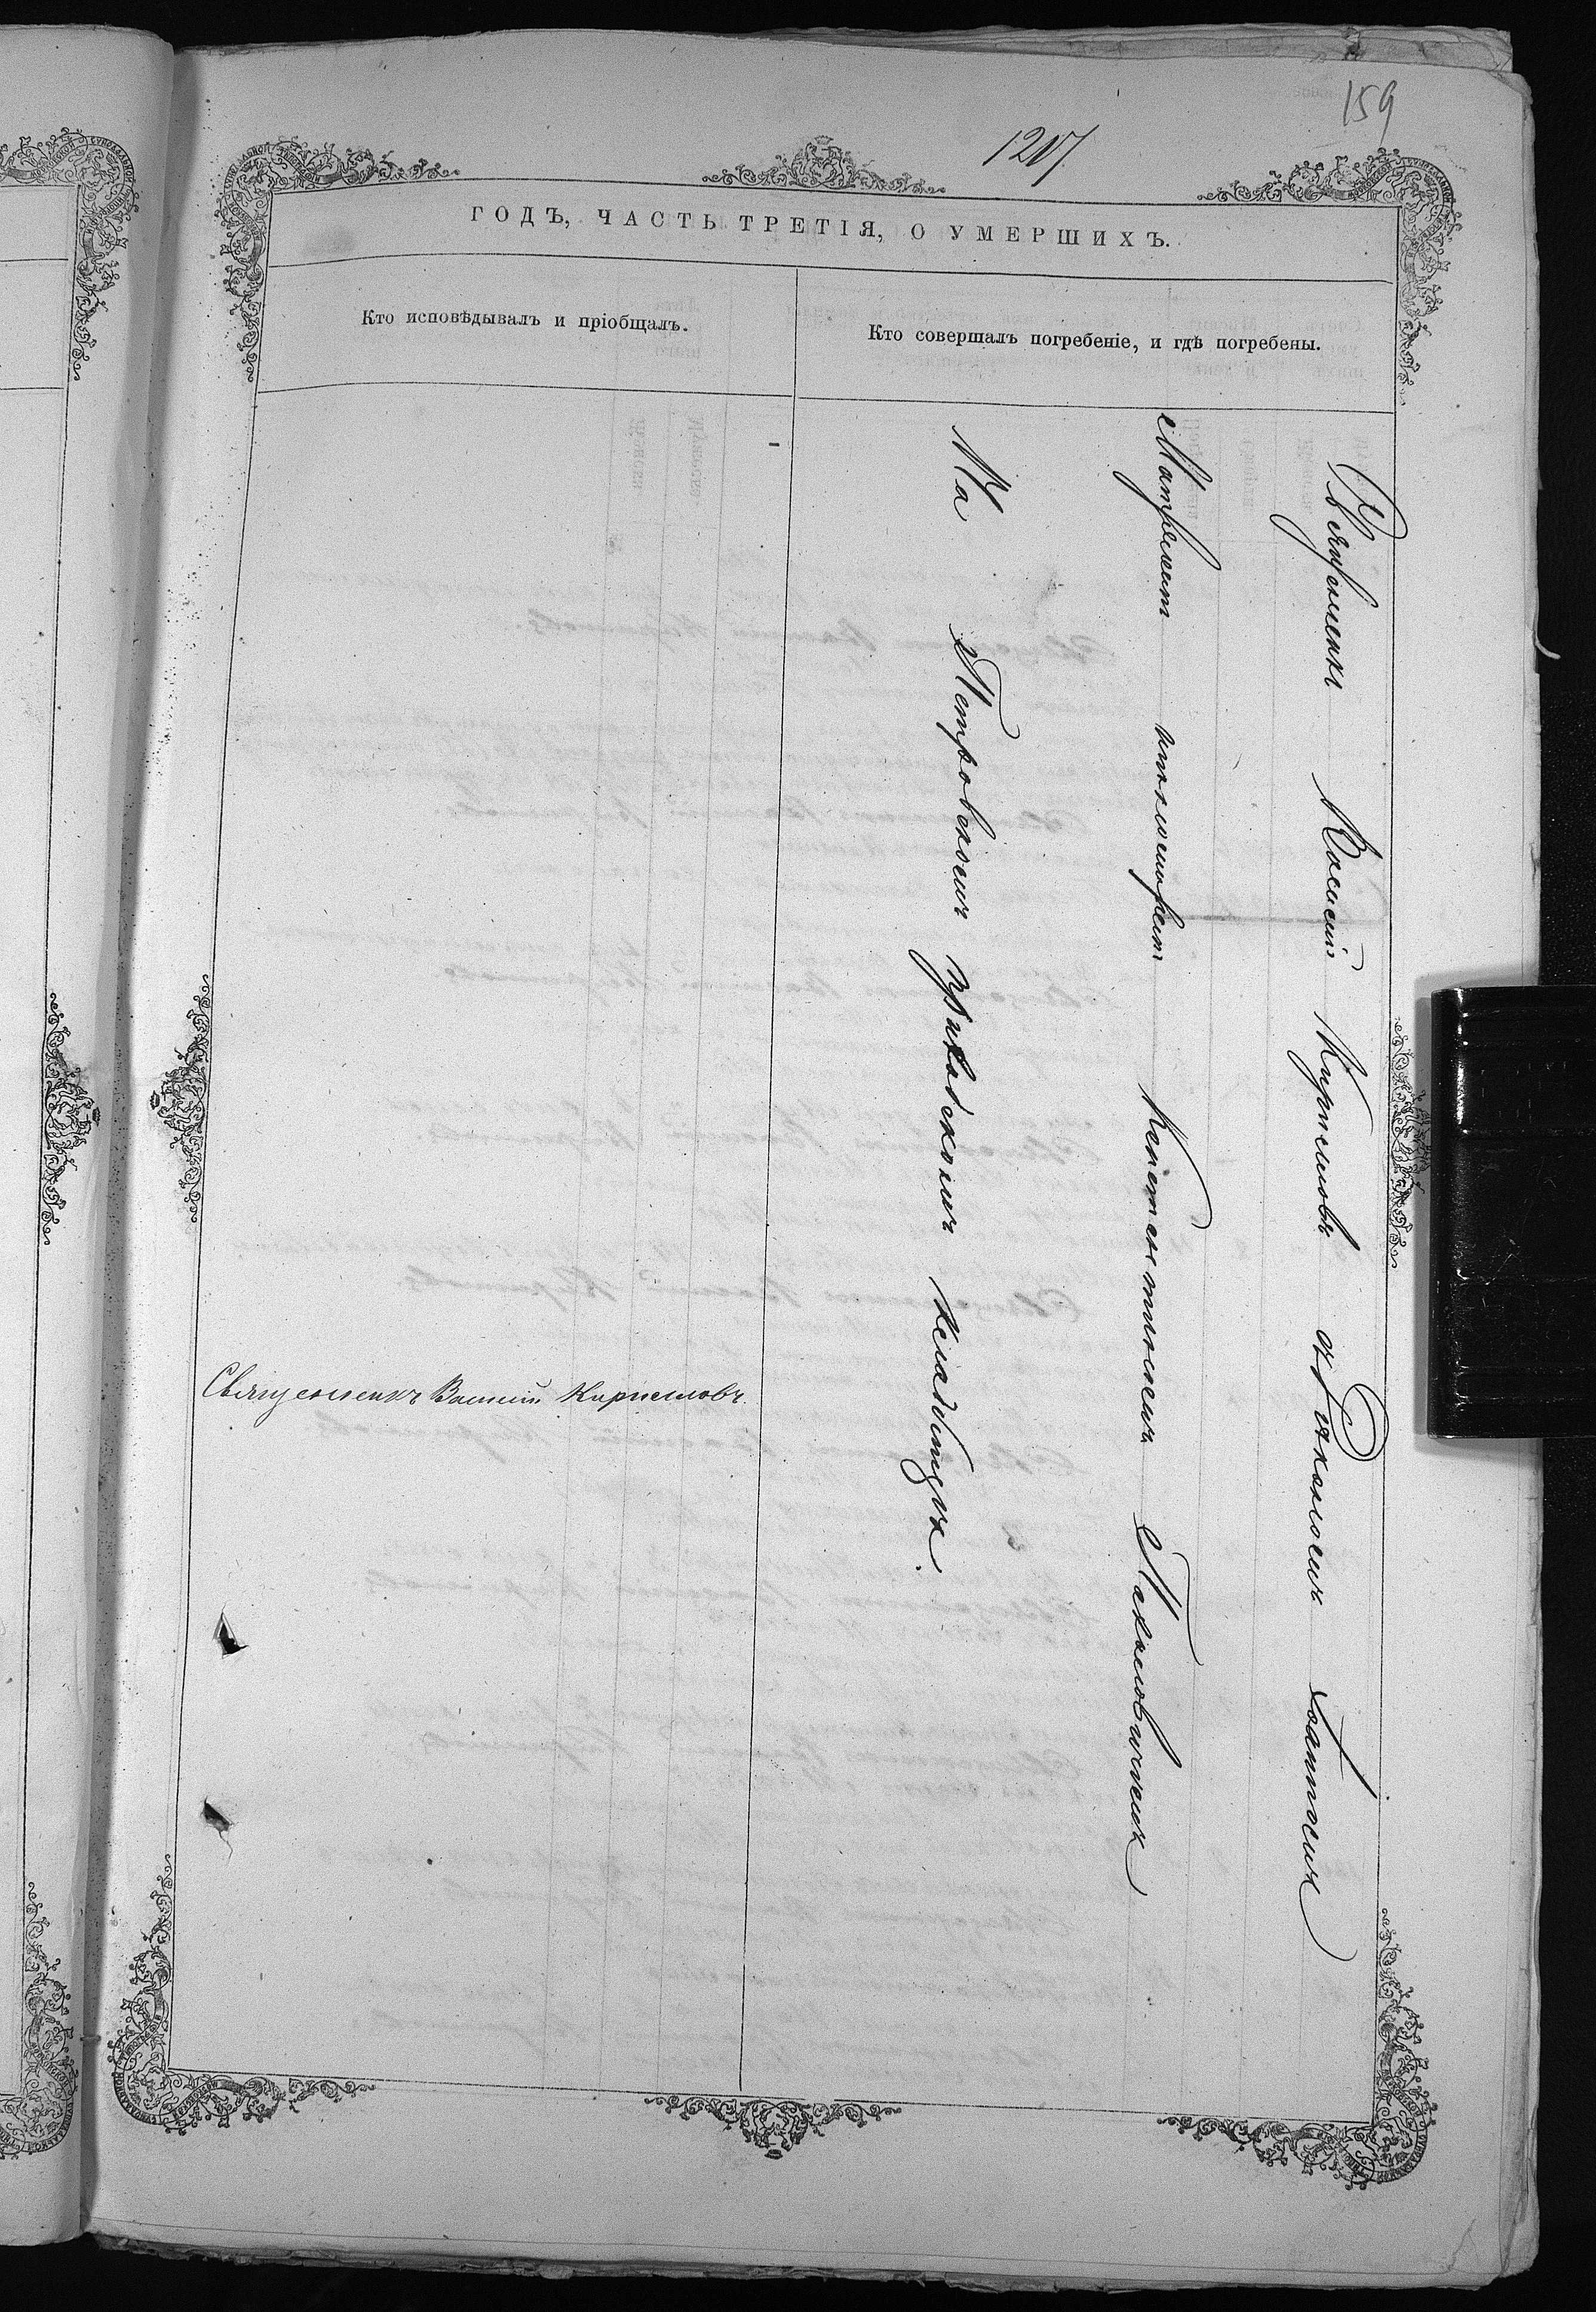 159
1207
ГОДЪ, ЧАСТЬ ТРЕТІЯ, О УМЕРШИХЪ.
Кто исповѣдывалъ и пріобщалъ.
Кто совершалъ погребеніе, и гдѣ погребены.
Священникъ Василій Кирилловъ
Священникъ Василій Кирилловъ съ Діакономъ Іоанномъ
и псаломщикомъ Константиномъ
На Петровскомъ приходскомъ кладбищѣ.